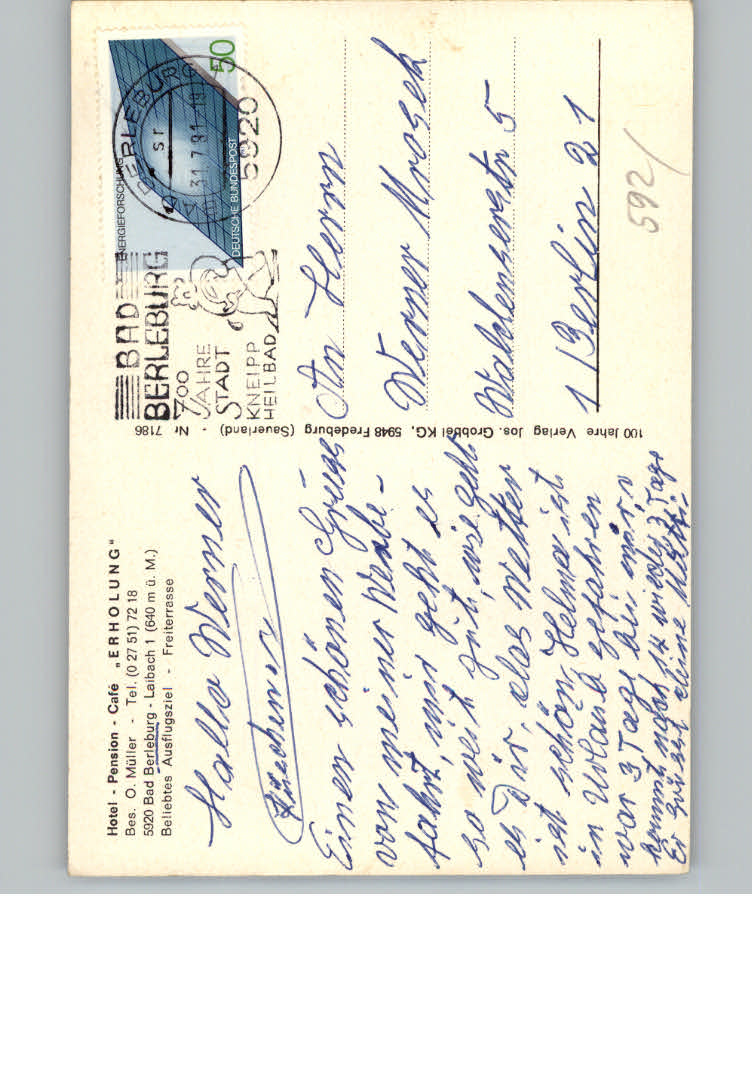 Hotel - Pension - Café „ERHOLUNG"
Bes. O. Müller - Tel. (0 27 51) 72 18
5920 Bad Berleburg - Laibach 1 (640 m ü. M.)
Beliebtes Ausflugsziel - Freiterrasse
Hallo Werner
Einen schönen Gruss
von meiner
fahrt, mir geht es
so weit gut, wie geht
es Dir, das Wetter
ist schön, Helma ist
in Urlaub gefahren
war 3 Tage bei mir,
kommt nach 14 wieder 3 Tage
Es grüsst deine
100 Jahre Verlag Jos. Grobbel KG, 5948 Fredeburg (Sauerland) - Nr 7186
BAD
BERLEBURG
700
JAHRE
STADT
KNEIPP
HEILBAD
ENERGIEFORSCHUNG
50
DEUTSCHE BUNDESPOST
BERLEBURG
sr
31.7.81-19
5920
An Herrn
Werner Mrosek
Waldenserstr 5
1 Berlin 21
592/